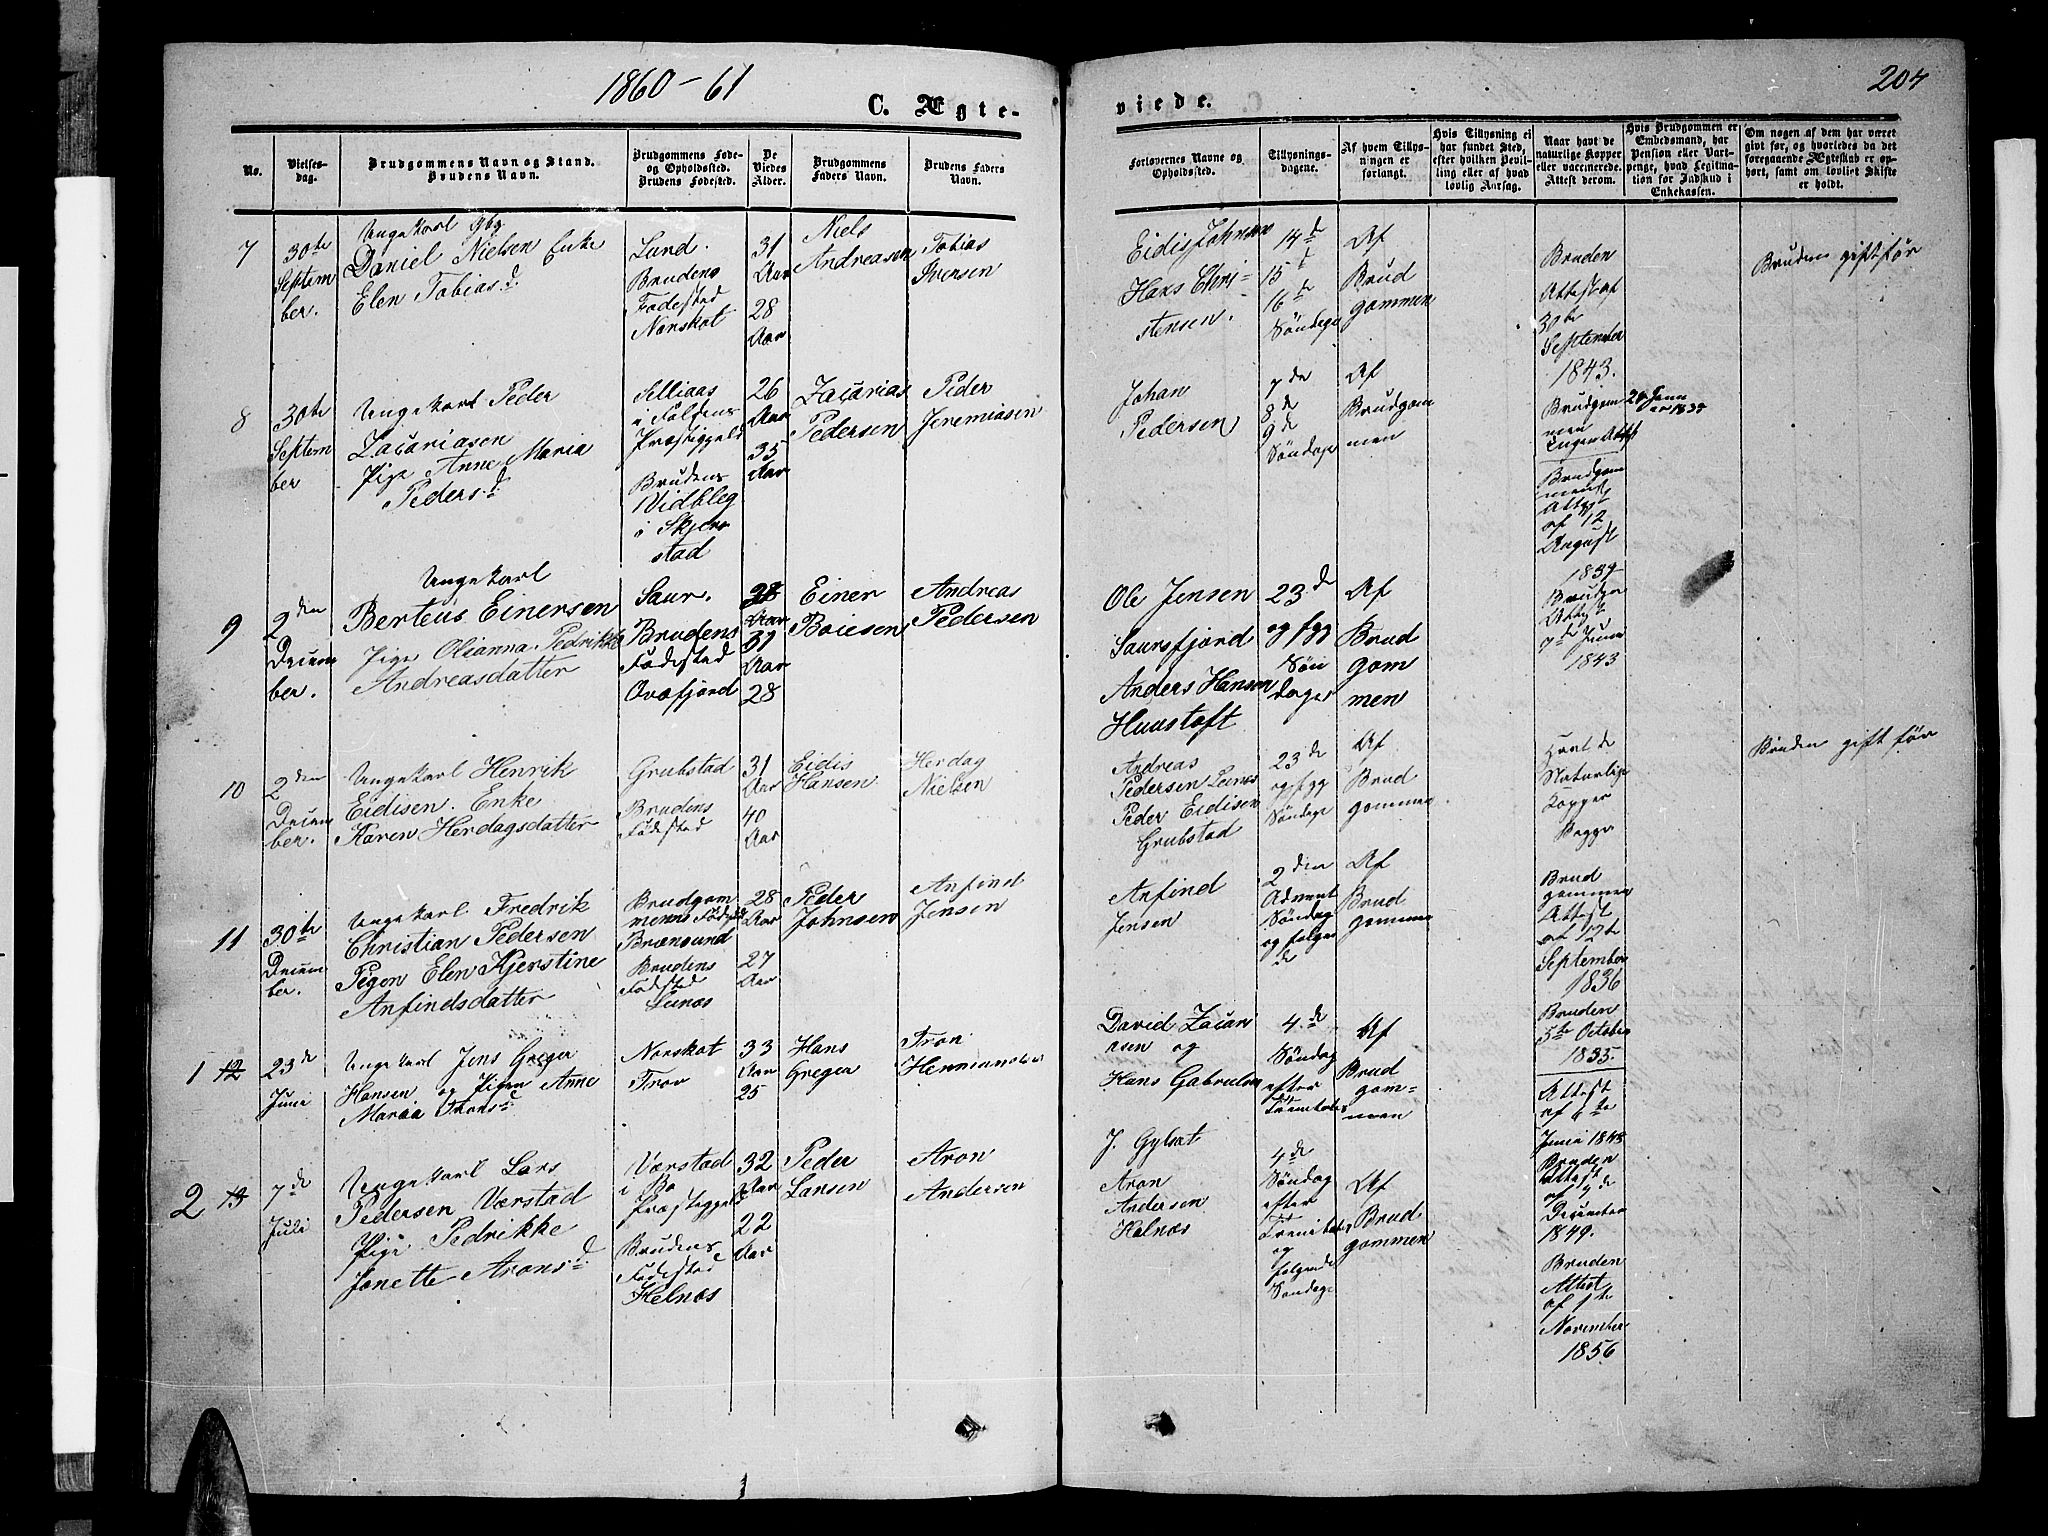 1860-61
204
C. Ægte-
viede.
No.
Vielses-
dag.
Brudgommens Navn og Stand.
Brudens Navn.
Brudgommens Føde-
og Opholdssted.
Brudens Fødested.
De
Viedes
Alder.
Brudgommens
Faders Navn.
Brudens Faders
Navn.
Forlovernes Navne og
Opholdssted.
Tillysnings-
dagene.
Af hvem Tillys-
ningen er
forlangt.
Hvis Tillysning ei
har fundet Sted,
efter hvilken Bevil-
ling eller af hvad
lovlig Aarsag.
Naar havt de
naturlige Kopper
eller vaccinerede.
Attest derom.
Hvis Brudgommen er
Embedsmand, har
Pension eller Vart-
penge, hvad Legitima-
tion for Indskud i
Enkekassen.
Om nogen af dem har været
gift før, og hvorledes da det
foregaaende Ægteskab er op-
hørt, samt om lovligt Skifte
er holdt.
7
30te
Septem
ber.
Ungekarl
Daniel Nielsen Enke
Elen Tobiasd.
Lund.
Brudens
Fødested
Norskot
31
Aar
28
Aar
Niels
Andreasen
Tobias
Svensen
Eidis Johnsen
Hans Chri-
stensen.
14d
15d
16de
Søndage
Af
Brud
gommen
Bruden
Attest af
30te
September
1843.
Bruden gift før
8
30te
Septem
ber
Ungekarl Peder
Zacariasen
Pige Anne Maria
Pedersd.
Selliaas
i Foldens
Præstegjeld
Brudens
Vidbleg
i Skjer
stad
26
Aar
35
Aar
Zacarias
Pedersen
Peder
Jeremiasen
Johan
Pedersen
7de
8d
9d
Søndage
Af
Brudgom
men
Brudgom
men
Ingen Attest
Brudgom
mens
Attest
af 12
August
1839
9
2den
Decem
ber.
Ungekarl
Berteus Einersen
Pige Olianna Pedrikke
Andreasdatter
Saur.
Brudens
Fødested
Ovafjord
Aar
31
Aar
28
Einer
Boiesen
Andreas
Pedersen
Ole Jensen
Saursfjord
Anders Hansen
Huustoft
23d
og fgg
Søn
dages
Af
Brud
gom
men
Brudgom
Attest
7d Juni
1843
10
2den
Decem
ber.
Ungekarl Henrik
Eidisen. Enke
Karen Herdagsdatter
Grubstad
Brudens
Fødested
31
Aar
40
Aar
Eidis
Hansen
Herdag
Nielsen
Andreas
Pedersen Leines
Peder Eidisen
Grubstad
23de
og fgg
Søndage
Af
Brud
gommen
Havt de
Naturlige
Kopper
Begge
Bruden gift før
11
30te
Decem
ber.
Ungekarl Fredrik
Christian Pedersen
Pigen Elen Kjerstine
Anfindsdatter
Brudgom
mens Fødested
Brænsund
Brudens
Fødested
Lunøs
28
Aar
27
Aar
Peder
Johnsen
Anfind
Jensen
Anfind
Jensen
2den
Advent
Søndag
og folgen
de
Af
Brud
gommen
Brud
gommen
Attest
af 12te
September
1836
Bruden
5te October
1835.
1 12
23de
Juni
Ungekarl Jens Greger
Hansen og Pigen Anne
Maria Tronsd
Norskot
Trov
33
Aar
25
Hans
Greger
Tron
Hermansen
David Zacari
asen og
Hans Gabrielsen
4de
Søndag
efter
Trinitatis
Af
Brud
gom-
men
Attest
af 6te
Juni 1848
Bruden
Attest
af 7de
December
1849.
2 13
7de
Juli
Ungekarl Lars
Pedersen Værstad
Pige Pedrikke
Jonette Aronsd
Værstad
i Bo
Præstegjeld
Brudens
Fødested
Helnæs
32
Aar
22
Aar
Peder
Larsen
Aron
Andersen
J. Gylset
Aron
Andersen
Helnæs
4de
Søndag
efter
Trinitatis
og
følgende
Søndage
Af
Brud
gommen
Bruden
Attest
af 1te
November
1856